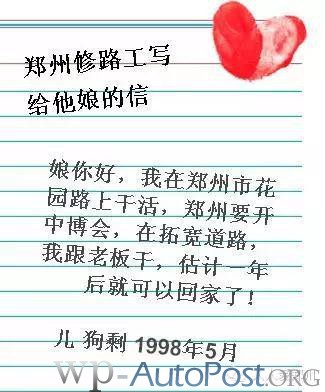 郑州修路工写
给他娘的信
娘你好，我在郑州市花
园路上干活，郑州要开
中博会，在拓宽道路，
我跟老板干，估计一年
后就可以回家了！
儿 狗剩 1998年5月
wp-AutoPost.ORG